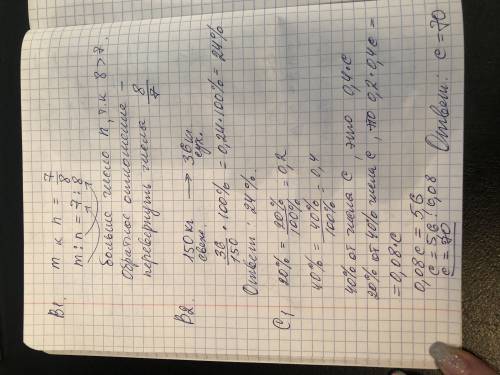 В1. m к n = 7/8
m : n = 7 : 8
больше число n, т.к 8 > 7.
Обратное отношение –
перевернуть числа 8/7
В2. 150 кг → 36 кг
свеж. сух.
36/150 · 100% = 0,24 · 100% = 24%
Ответ: 24%
С1 20% = 20%/100% = 0,2
40% = 40%/100% = 0,4
40% от числа с, это 0,4·с
20% от 40% числа с, то 0,2·0,4с =
= 0,08·с
0,08с = 5,6
с = 5,6 : 0,08
с = 70 Ответ: с = 70